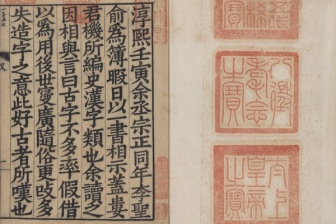 八徵耄念之寶
太上皇帝之寶
淳熙壬寅余丞宗正同年李聖
俞爲簿暇日以一書相示蓋婁
君機所編史漢字類也余讀之
因相與言曰古字不多率假借
以爲用後世寖廣隨俗更改多
失造字之意此好古者所嘆也